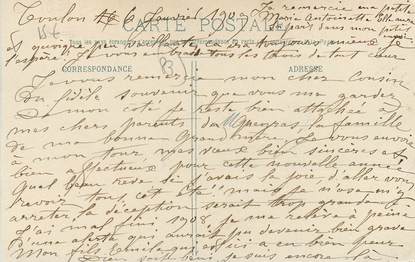 Toulon le 6 Janvier 190
Je remercie ma petite
Marie Antoinette
CARTE POSTALE
CORRESPONDANCE
ADRESSE
83
Je vous remercie mon cher Cousin
Du fidèle souvenir que vous me gardez
De mon coté je reste bien attachée à
mes chers parents du Queyras, la famille
de ma bonne Grand'mère. Je vous envoie
à mon tour, mes vœux bien sincères et
bien affectueux pour cette nouvelle année
Quel beau rêve si j'avais la joie d'aller vous
revoir tous, cet été mais je n'ose m'y
arreter, la déception serait trop grande
J'ai mal fini 1908 je me relève à peine
D'une alerte qui aurait pu devenir bien grave
Mon fils Emile qui est ici a eu bien peur